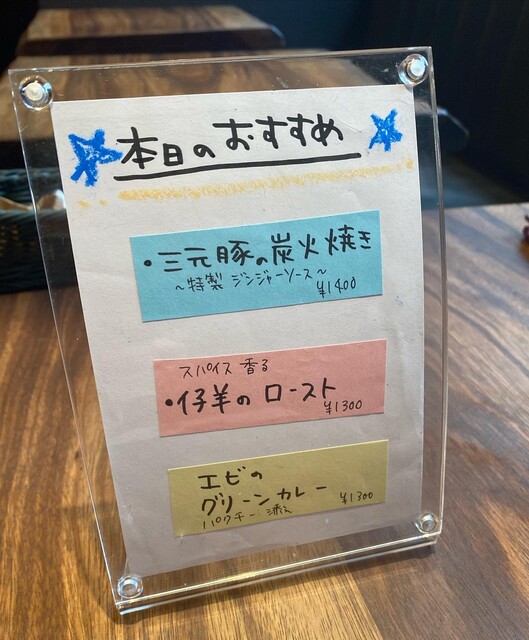 本日のおすすめ
・三元豚の炭火焼き
～特製 ジンジャーソース～
¥1400
スパイス 香る
・仔羊の ロースト
¥1300
エビの
グリーンカレー
パクチー 添え
¥1300